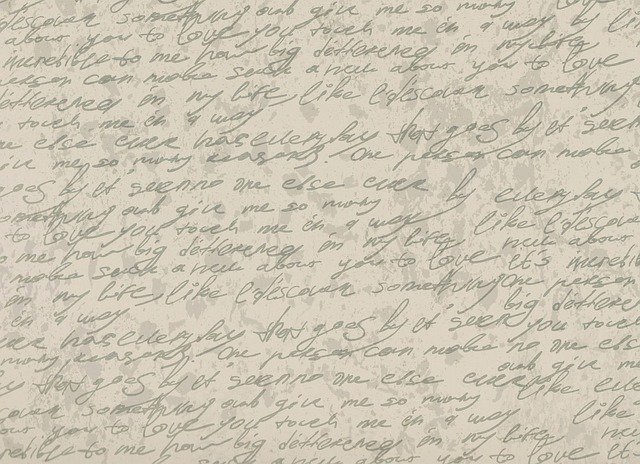 discover something and give me so many
about you to love you touch me in a way by
incredible to me how big difference in my life
person can make such a about you to love
difference in my life like I discover something
touch me in a way
one else ever has every day that goes by it seem
give me so many reasons. One person can make
goes by it seem no one else ever by every day
something and give me so many
to love you touch me in a way like I discover
me how big difference in my life about
make such a about you to love it's incredible
in my life, like I discover something One person
in a way big difference
ever has every day that goes by it seem you touch
many reasons. One person can make no one else
and give me
that goes by it seem no one else ever like
discover something and give me so many
about you to love you touch me in a way like
incredible to me how big difference in my life
such a about you to love it's